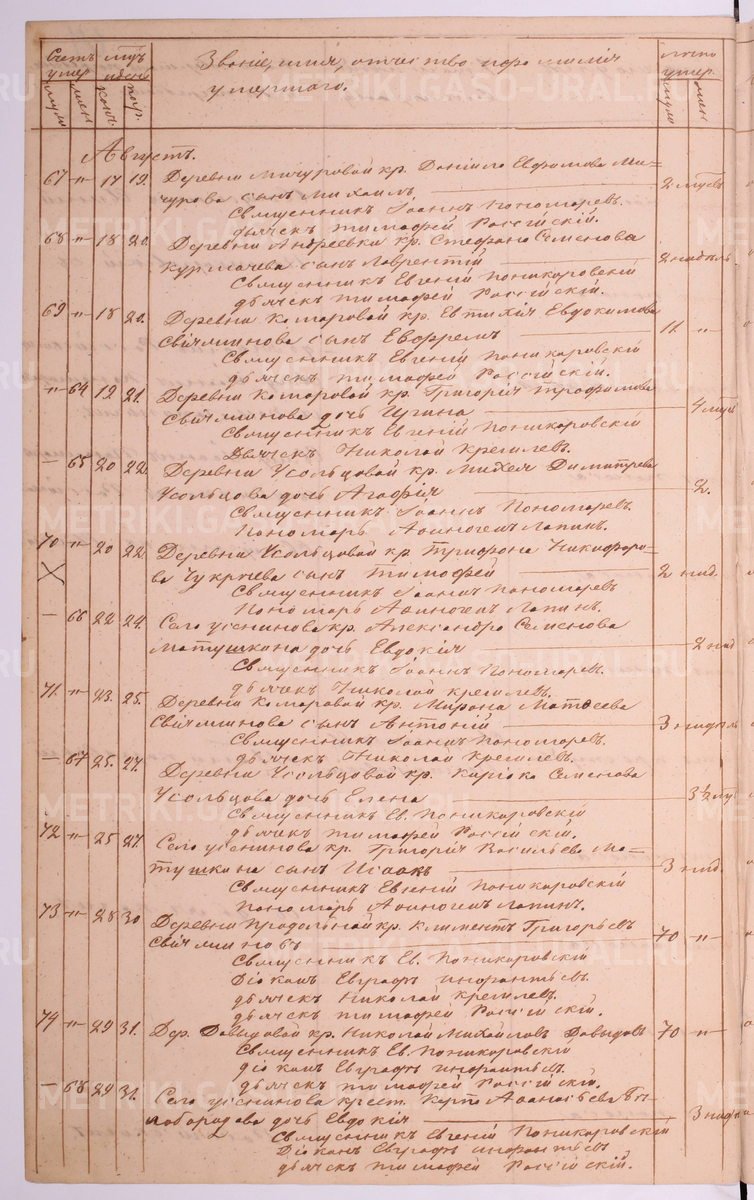 Счетъ умер.
муж. жен.
Мѣс. и день
кон. пог.
Званіе, имя, отчество и фамилія
умершаго.
Лѣто умер.
муж. жен.
Августъ.
67 „ 17 19. Деревни Мичуровой кр. Даніила Евфимова Ми-
чурова сынъ Михаилъ 2 мѣсъ
Священникъ Іоаннъ Пономаревъ.
дьячекъ Тимофей Россійскій.
68 „ 18 20. Деревни Андреевки кр. Стефана Семенова
Курмачева сынъ Лаврентій 2 недѣль
Священникъ Евгеній Поникаровскій
дьячекъ Тимофей Россійскій.
69 „ 18 20. Деревни Комаровой кр. Евтихія Евдокимова
сынъ Ефремъ 11. „
Священникъ Евгеній Поникаровскій
дьячекъ Тимофей Россійскій.
„ 64 19 21. Деревни Комаровой кр. Григорія Трофимова
дочь Ирина 4 мѣс
Священникъ Евгеній Поникаровскій
Дьячекъ Николай
— 65 20 22. Деревни Усольцовой кр. Михея Димитрева
Усольцова дочь Агафія 2.
Священникъ Іоаннъ Пономаревъ.
Пономарь Афиногенъ Лапинъ.
70 „ 20 22. Деревни Усольцовой кр. Трифона Никифоро-
ва сынъ Тимофей 2 нид.
Священникъ Іоаннъ Пономаревъ
Пономарь Афиногенъ Лапинъ.
— 66 22 24. Села кр. Александра Семенова
Матушкина дочь Евдокія 2 нид
Священникъ Іоаннъ Пономаревъ.
дьячекъ Николай
71. „ 23. 25. Деревни Комаровой кр. Мирона Матвеева
сынъ Антоній 3 нидѣль
Священникъ Іоаннъ Пономаревъ.
дьячекъ Николай
— 67 25. 27. Деревни Усольцовой кр. Карпа Семенова
Усольцова дочь Елена 3½
Священникъ Ев. Поникаровскій
дьячекъ Тимофей Россійскій.
72 „ 25 27. Села кр. Григорія Васильева Ма-
тушкина сынъ Исаакъ 3 нид.
Священникъ Евгеній Поникаровскій
Пономарь Афиногенъ Лапинъ.
73 „ 28 30 Деревни Продольной кр. Климентъ Григорьевъ
70 „
Священникъ Ев. Поникаровскій
Діаконъ Евграфъ
дьячекъ Николай
дьячекъ Тимофей Россійскій.
74 „ 29 31. Дер. Давыдовой кр. Николай Михайловъ Давыдовъ 70 „
Священникъ Ев. Поникаровскій
діаконъ Евграфъ
дьячекъ Тимофей Россійскій.
— 68 29 31. Села крест. Карпа Афанасьева Бѣ-
лобородова дочь Евдокія 3
Священникъ Евгеній Поникаровскій
Діаконъ Евграфъ
дьячекъ Тимофей Россійскій.
METRIKI.GASO-URAL.RU